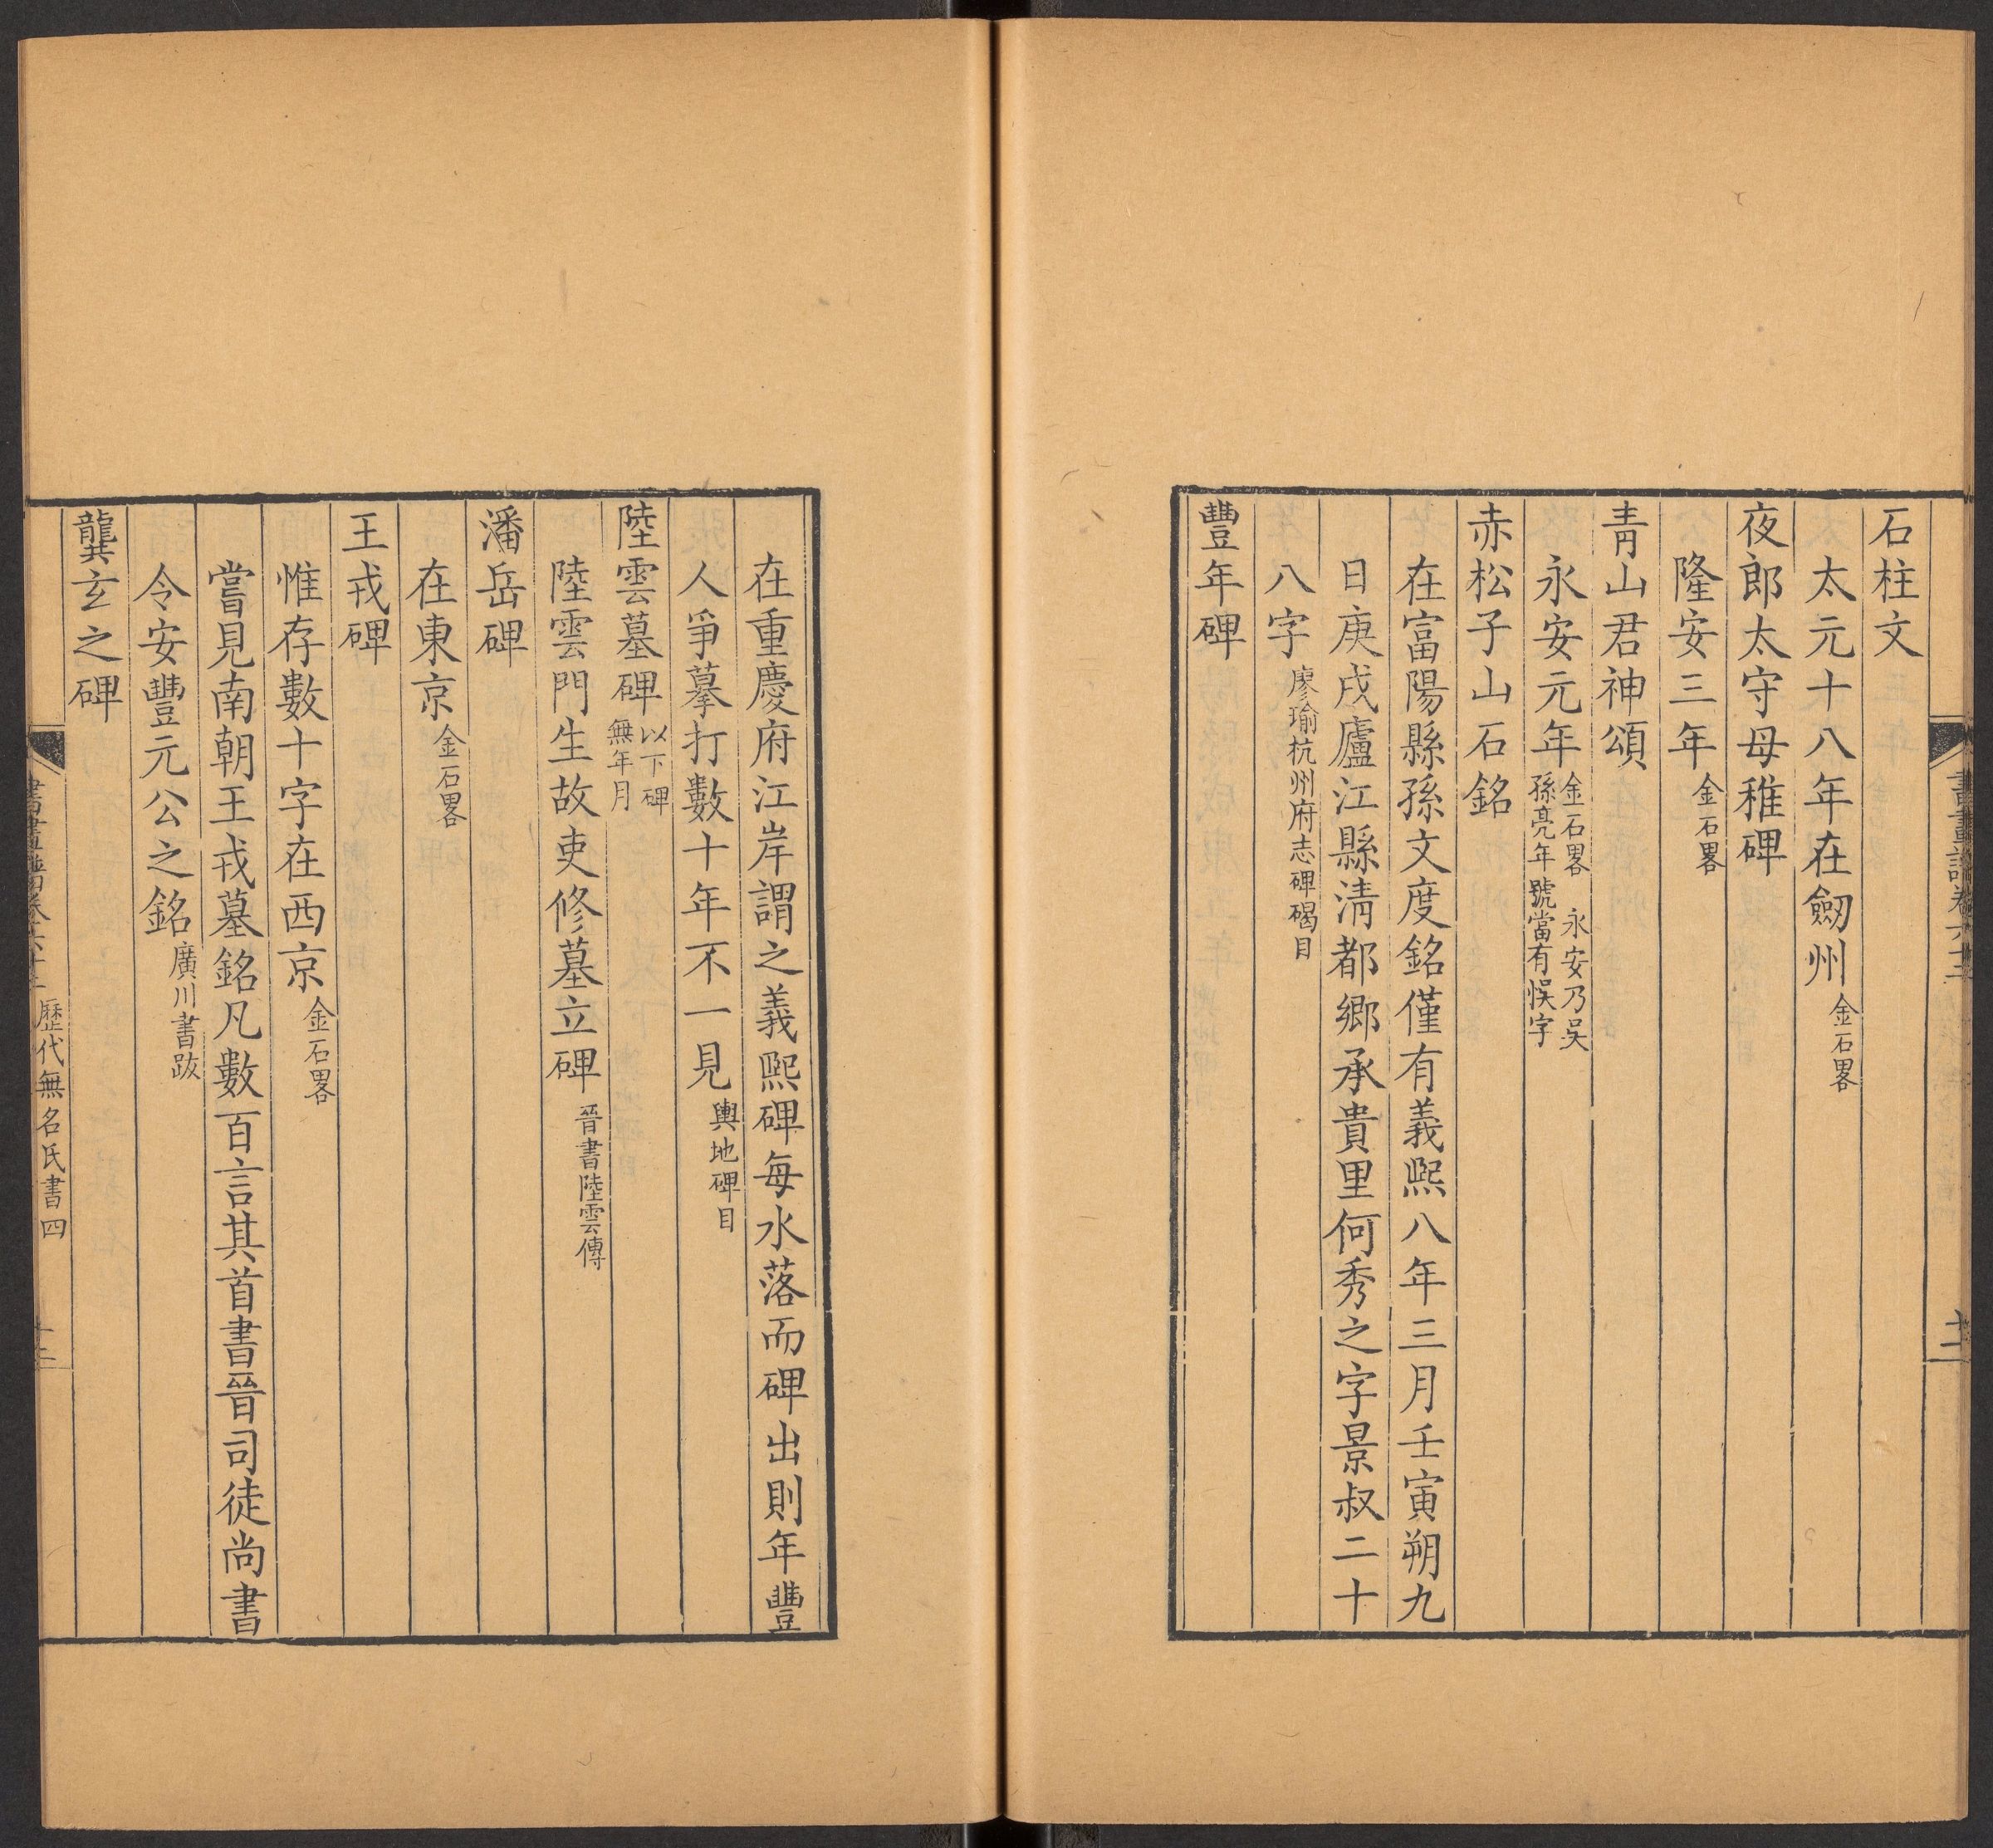 石柱文
太元十八年在劒州金石畧
夜郎太守母稚碑
隆安三年金石畧
青山君神頌
永安元年金石畧 永安乃吳孫亮年號當有悞字
赤松子山石銘
在富陽縣孫文度銘僅有義熙八年三月壬寅朔九
日庚戌廬江縣清都鄉承貴里何秀之字景叔二十
八字廖瑜杭州府志碑碣目
豐年碑
在重慶府江岸謂之義熙碑每水落而碑出則年豐
人爭摹打數十年不一見輿地碑目
陸雲墓碑以下碑無年月
陸雲門生故吏修墓立碑晉書陸雲傳
潘岳碑
在東京金石畧
王戎碑
惟存數十字在西京金石畧
嘗見南朝王戎墓銘凡數百言其首書晉司徒尚書
令安豐元公之銘廣川書跋
龔玄之碑
歷代無名氏書四